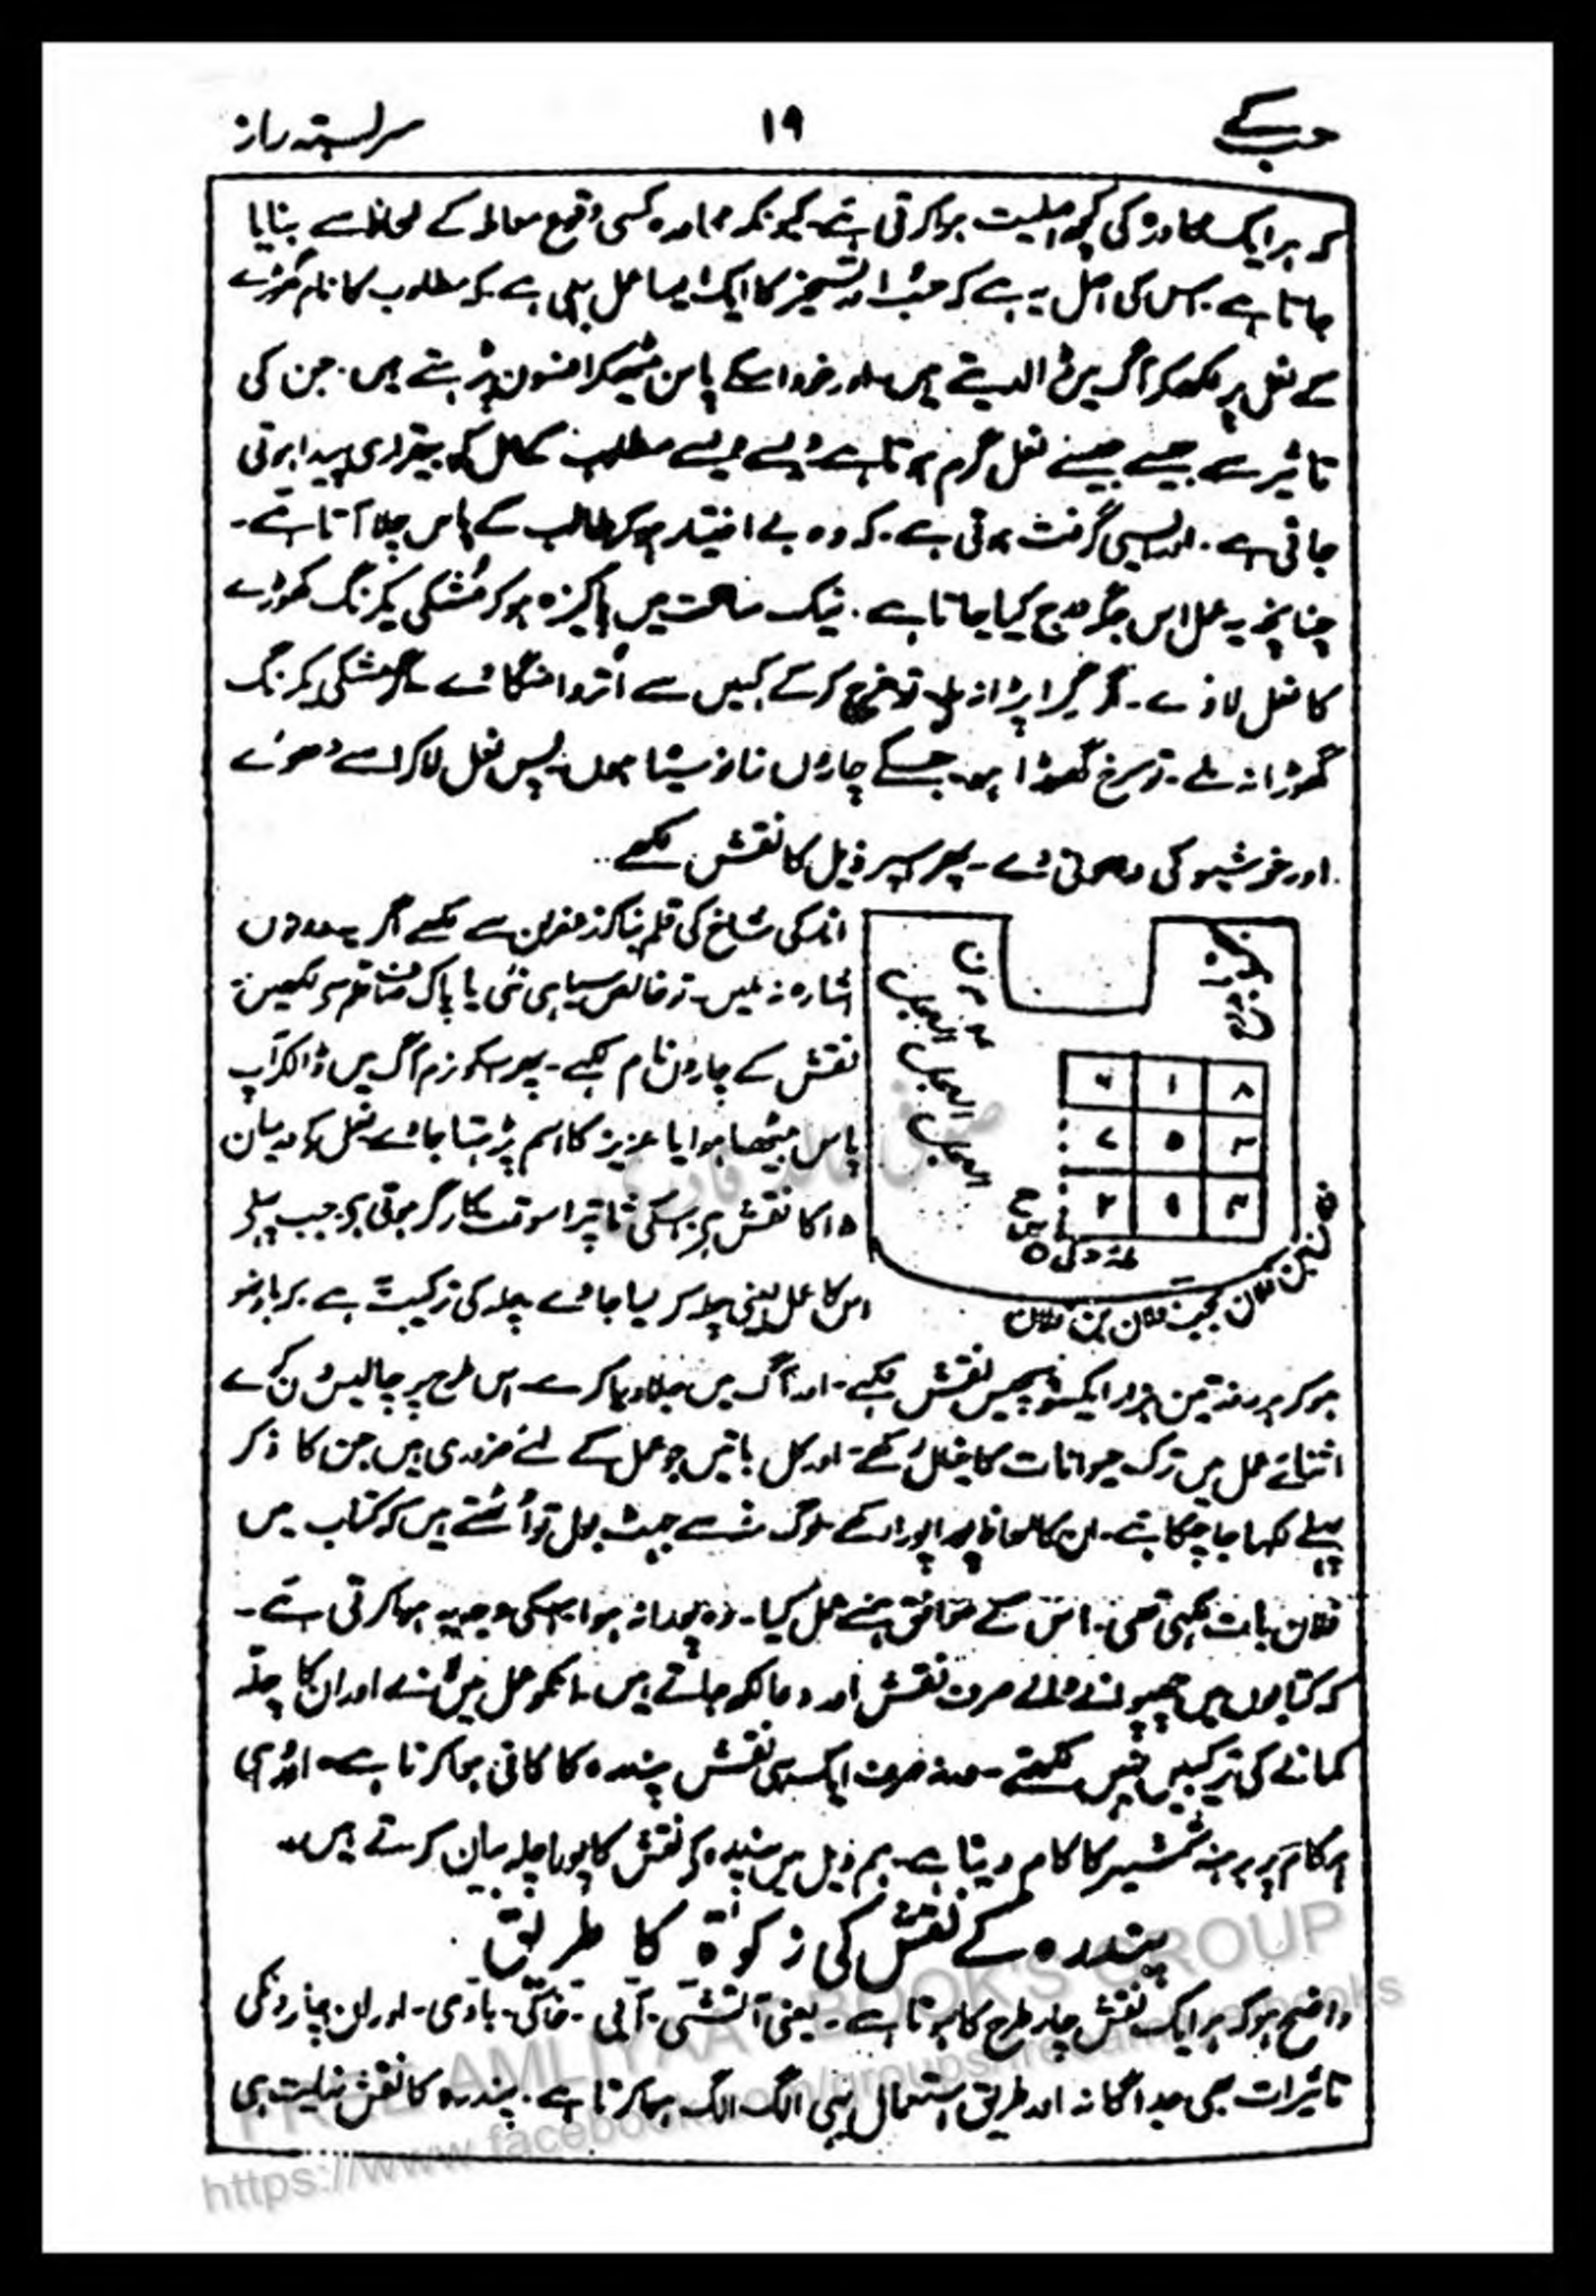 حب کے ۱۹ سربستہ راز
کہ ہر ایک محاورہ کی کچھ اصلیت ہوا کرتی ہے۔ کیونکہ محاورہ کسی وقیع معاملہ کے لحاظ سے بنایا
جاتا ہے۔ اس کی اصل یہ ہے کہ حُب اور تسخیر کا ایک ایسا عمل بھی ہے۔ کہ مطلوب کا نام گھوڑے
کے نعل پر لکھکر آگ میں ڈالدیتے ہیں۔ اور خود اسکے پاس بیٹھکر افسون پڑہتے ہیں۔ جن کی
تاثیر سے جیسے جیسے نعل گرم ہوتا ہے ویسے ویسے مطلوب کے دل کو بیقراری پیدا ہوتی
جاتی ہے۔ اور ایسی گرفت ہوتی ہے۔ کہ وہ بے اختیار ہو کر طالب کے پاس چلا آتا ہے۔
چنانچہ یہ عمل اس جگہ درج کیا جاتا ہے۔ نیک ساعت میں پاکیزہ ہو کر مُشکی یکرنگ گھوڑے
کا نعل لاوے۔ گر پڑا نہ ملے تو خرچ کر کے کہیں سے اُتروا منگاوے۔ اگر مشکی یکرنگ
گھوڑا نہ ملے۔ تو سرخ گھوڑا ہو۔ جسکے چاروں زانو سیاہ ہوں۔ پس نعل لا کر اسے دھوئے
اور خوشبو کی دھونی دے۔ پھر اسپر ذیل کا نقش لکھے۔
انار کی شاخ کی قلم بنا کر زعفران سے لکھے اگر یہ دونوں
اشارہ نہ ملیں۔ تو خالص سیاہی نئی یا پاک صاف قلم سے لکھیں
نقش کے چاروں نام لکھے۔ پھر اسکو نرم آگ میں ڈالکر آپ
پاس بیٹھا ہوا یا عزیز کا اسم پڑہتا جاوے نعل کے درمیان
۱۵ کا نقش ہے۔ اسکی تاثیر اسوقت کارگر ہوتی ہے۔ جب پہلے
اس کا عمل یعنی چلہ کر لیا جاوے۔ چلہ کی ترکیب یہ ہے۔ کہ باوضو
العجل
العجل
العجل
۶ ۱ ۸
۷ ۵ ۳
۲ ۹ ۴
فلان بن فلان بحب فلان بن فلان
ہو کر ہر روز تین ہزار ایکسو پچیس نقش لکھے۔ اور آگ میں جلا دیا کرے۔ اس طرح پر چالیس دن کرے
اثنائے عمل میں ترک حیوانات کا خیال رکھے۔ اور کل باتیں جو عمل کے لئے ضروری ہیں جن کا ذکر
پہلے لکھا جا چکا ہے۔ ان کا لحاظ پورا پورا رکھے لوگ جھٹ بول اُٹھتے ہیں کہ کتاب میں
فلان بات لکھی تھی۔ اس کے موافق ہمنے عمل کیا۔ وہ پورا نہ ہوا۔ اسکی وجہ یہ ہوا کرتی ہے۔
کہ کتابوں میں چھپوانے والے صرف نقش اور دعا لکھ جاتے ہیں۔ انکو عمل میں لانے اور ان کا چلہ
کمانے کی ترکیبیں نہیں لکھتے۔ ورنہ صرف ایک ہی نقش پندرہ کا کافی ہوا کرتا ہے۔ اور وہی
ہر کام پر برہنہ شمشیر کا کام دیتا ہے۔ ہم ذیل میں پندرہ کے نقش کا پورا چلہ بیان کرتے ہیں۔
پندرہ کے نقش کی زکوٰۃ کا طریق
واضح ہو کہ ہر ایک نقش چار طرح کا ہوتا ہے۔ یعنی آتشی۔ آبی۔ خاکی۔ بادی۔ اور ان چاروں کی
تاثیرات بھی جداگانہ اور طریق استعمال بھی الگ الگ ہوا کرتا ہے۔ پندرہ کا نقش نہایت ہی
FREE AMLIYAAT BOOK'S GROUP
https://www.facebook.com/groups/freeamliyatbooks